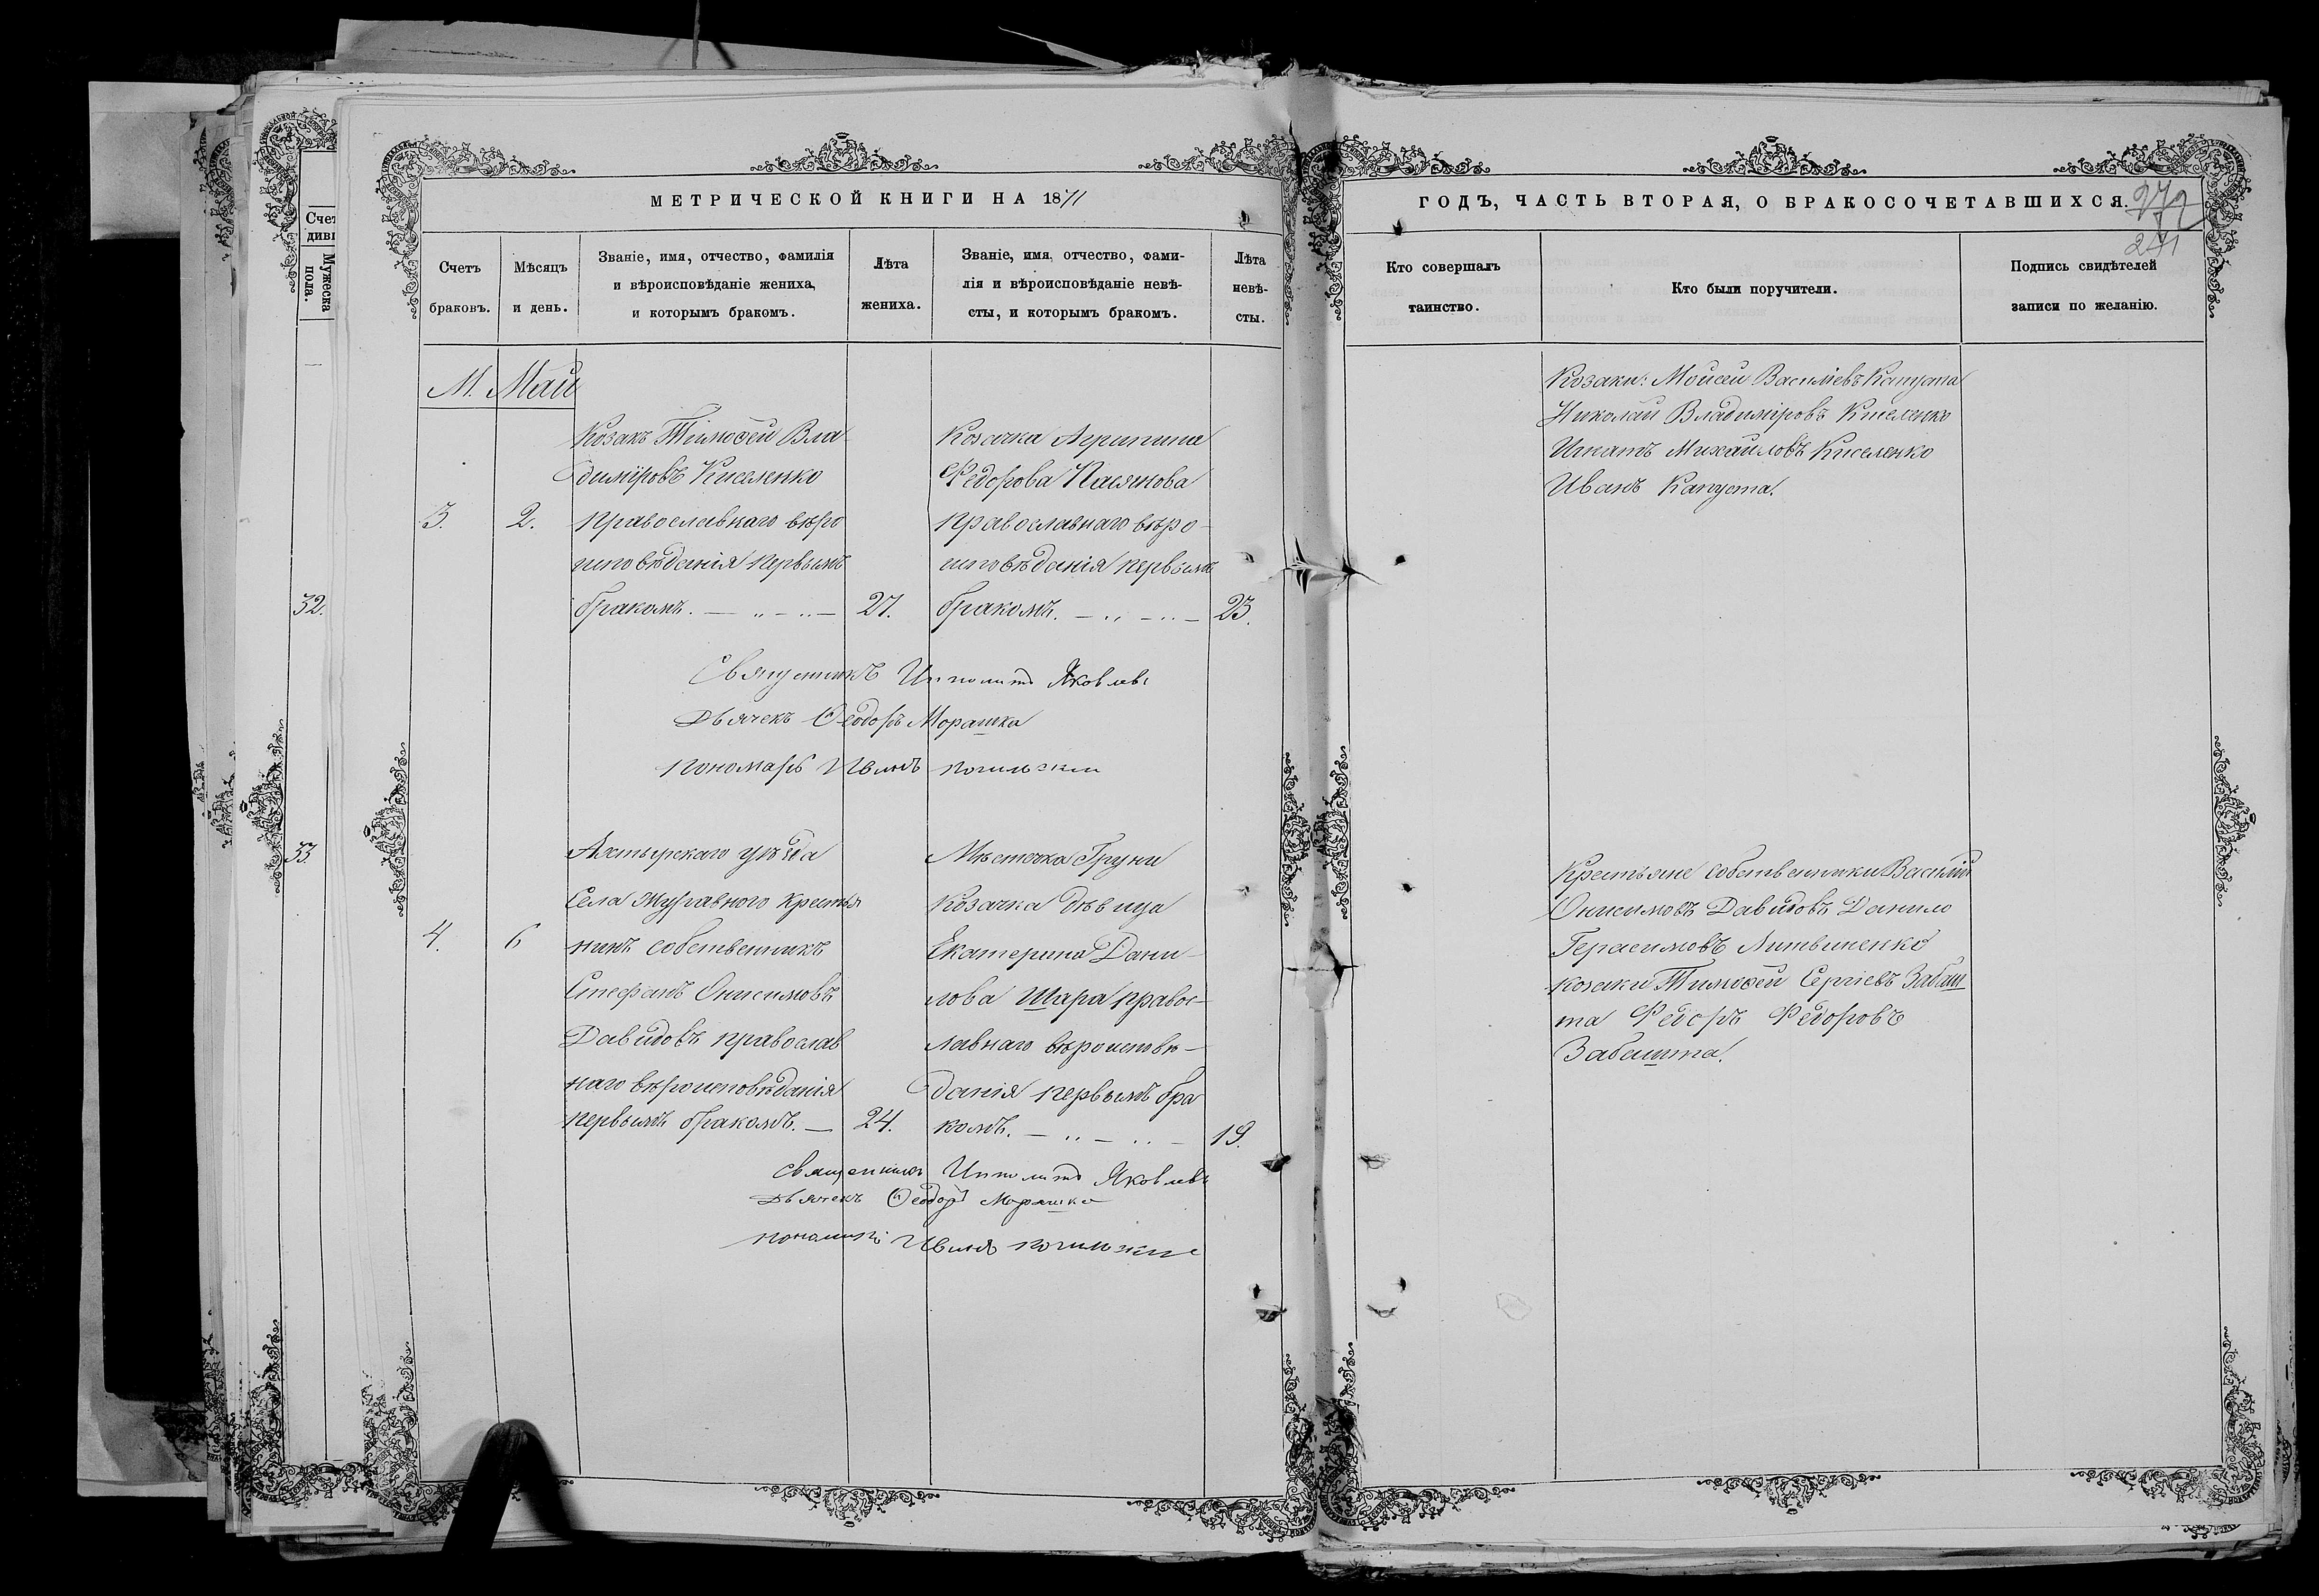 МЕТРИЧЕСКОЙ КНИГИ НА 1871
ГОДЪ, ЧАСТЬ ВТОРАЯ, О БРАКОСОЧЕТАВШИХСЯ.
272
271
Счет
Мужеска
пола.
32.
33
Счетъ
браковъ.
Мѣсяцъ
и день.
Званіе, имя, отчество, фамилія
и вѣроисповѣданіе жениха,
и которымъ бракомъ.
Лѣта
жениха.
Званіе, имя, отчество, фами-
лія и вѣроисповѣданіе невѣ-
сты, и которымъ бракомъ.
Лѣта
невѣ-
сты.
Кто совершалъ
таинство.
Кто были поручители.
Подпись свидѣтелей
записи по желанію.
М. Май
3.
2.
Козакъ Тімоѳей Вла
диміровъ Киселенко
православнаго вѣро
исповѣданія первымъ
бракомъ.
27.
Козачка Агрипина
Федорова Касянова
православнаго вѣро-
исповѣданія первымъ
бракомъ.
23.
Козаки: Мойсей Василіевъ Капуста
Николай Владиміровъ Киселенко
Игнатъ Михайловъ Киселенко
Иванъ Капуста.
Священникъ Ипполитъ Яковлевъ
Дьячекъ Ѳеодоръ Морашка
Пономарь Иванъ
4.
6
Ахтырскаго уѣзда
Села Муравного Крестья
нинъ собственникъ
Стефанъ Онисимовъ
Давидовъ православ
наго вѣроисповѣданія
первымъ бракомъ.
24.
Мѣстечка Груни
Козачка дѣвица
Екатерина Дани-
лова Шара правос-
лавнаго вѣроисповѣ-
данія первымъ бра
комъ.
19.
Крестьяне собственники Василій
Онисимовъ Давидовъ Данило
Герасимовъ Литвиненко
козаки Тимоѳей Сергіевъ Забаш
та Федоръ Федоровъ
Забашта.
Священникъ Ипполитъ Яковлевъ
Дьячекъ Ѳеодоръ Морашка
Пономарь Иванъ